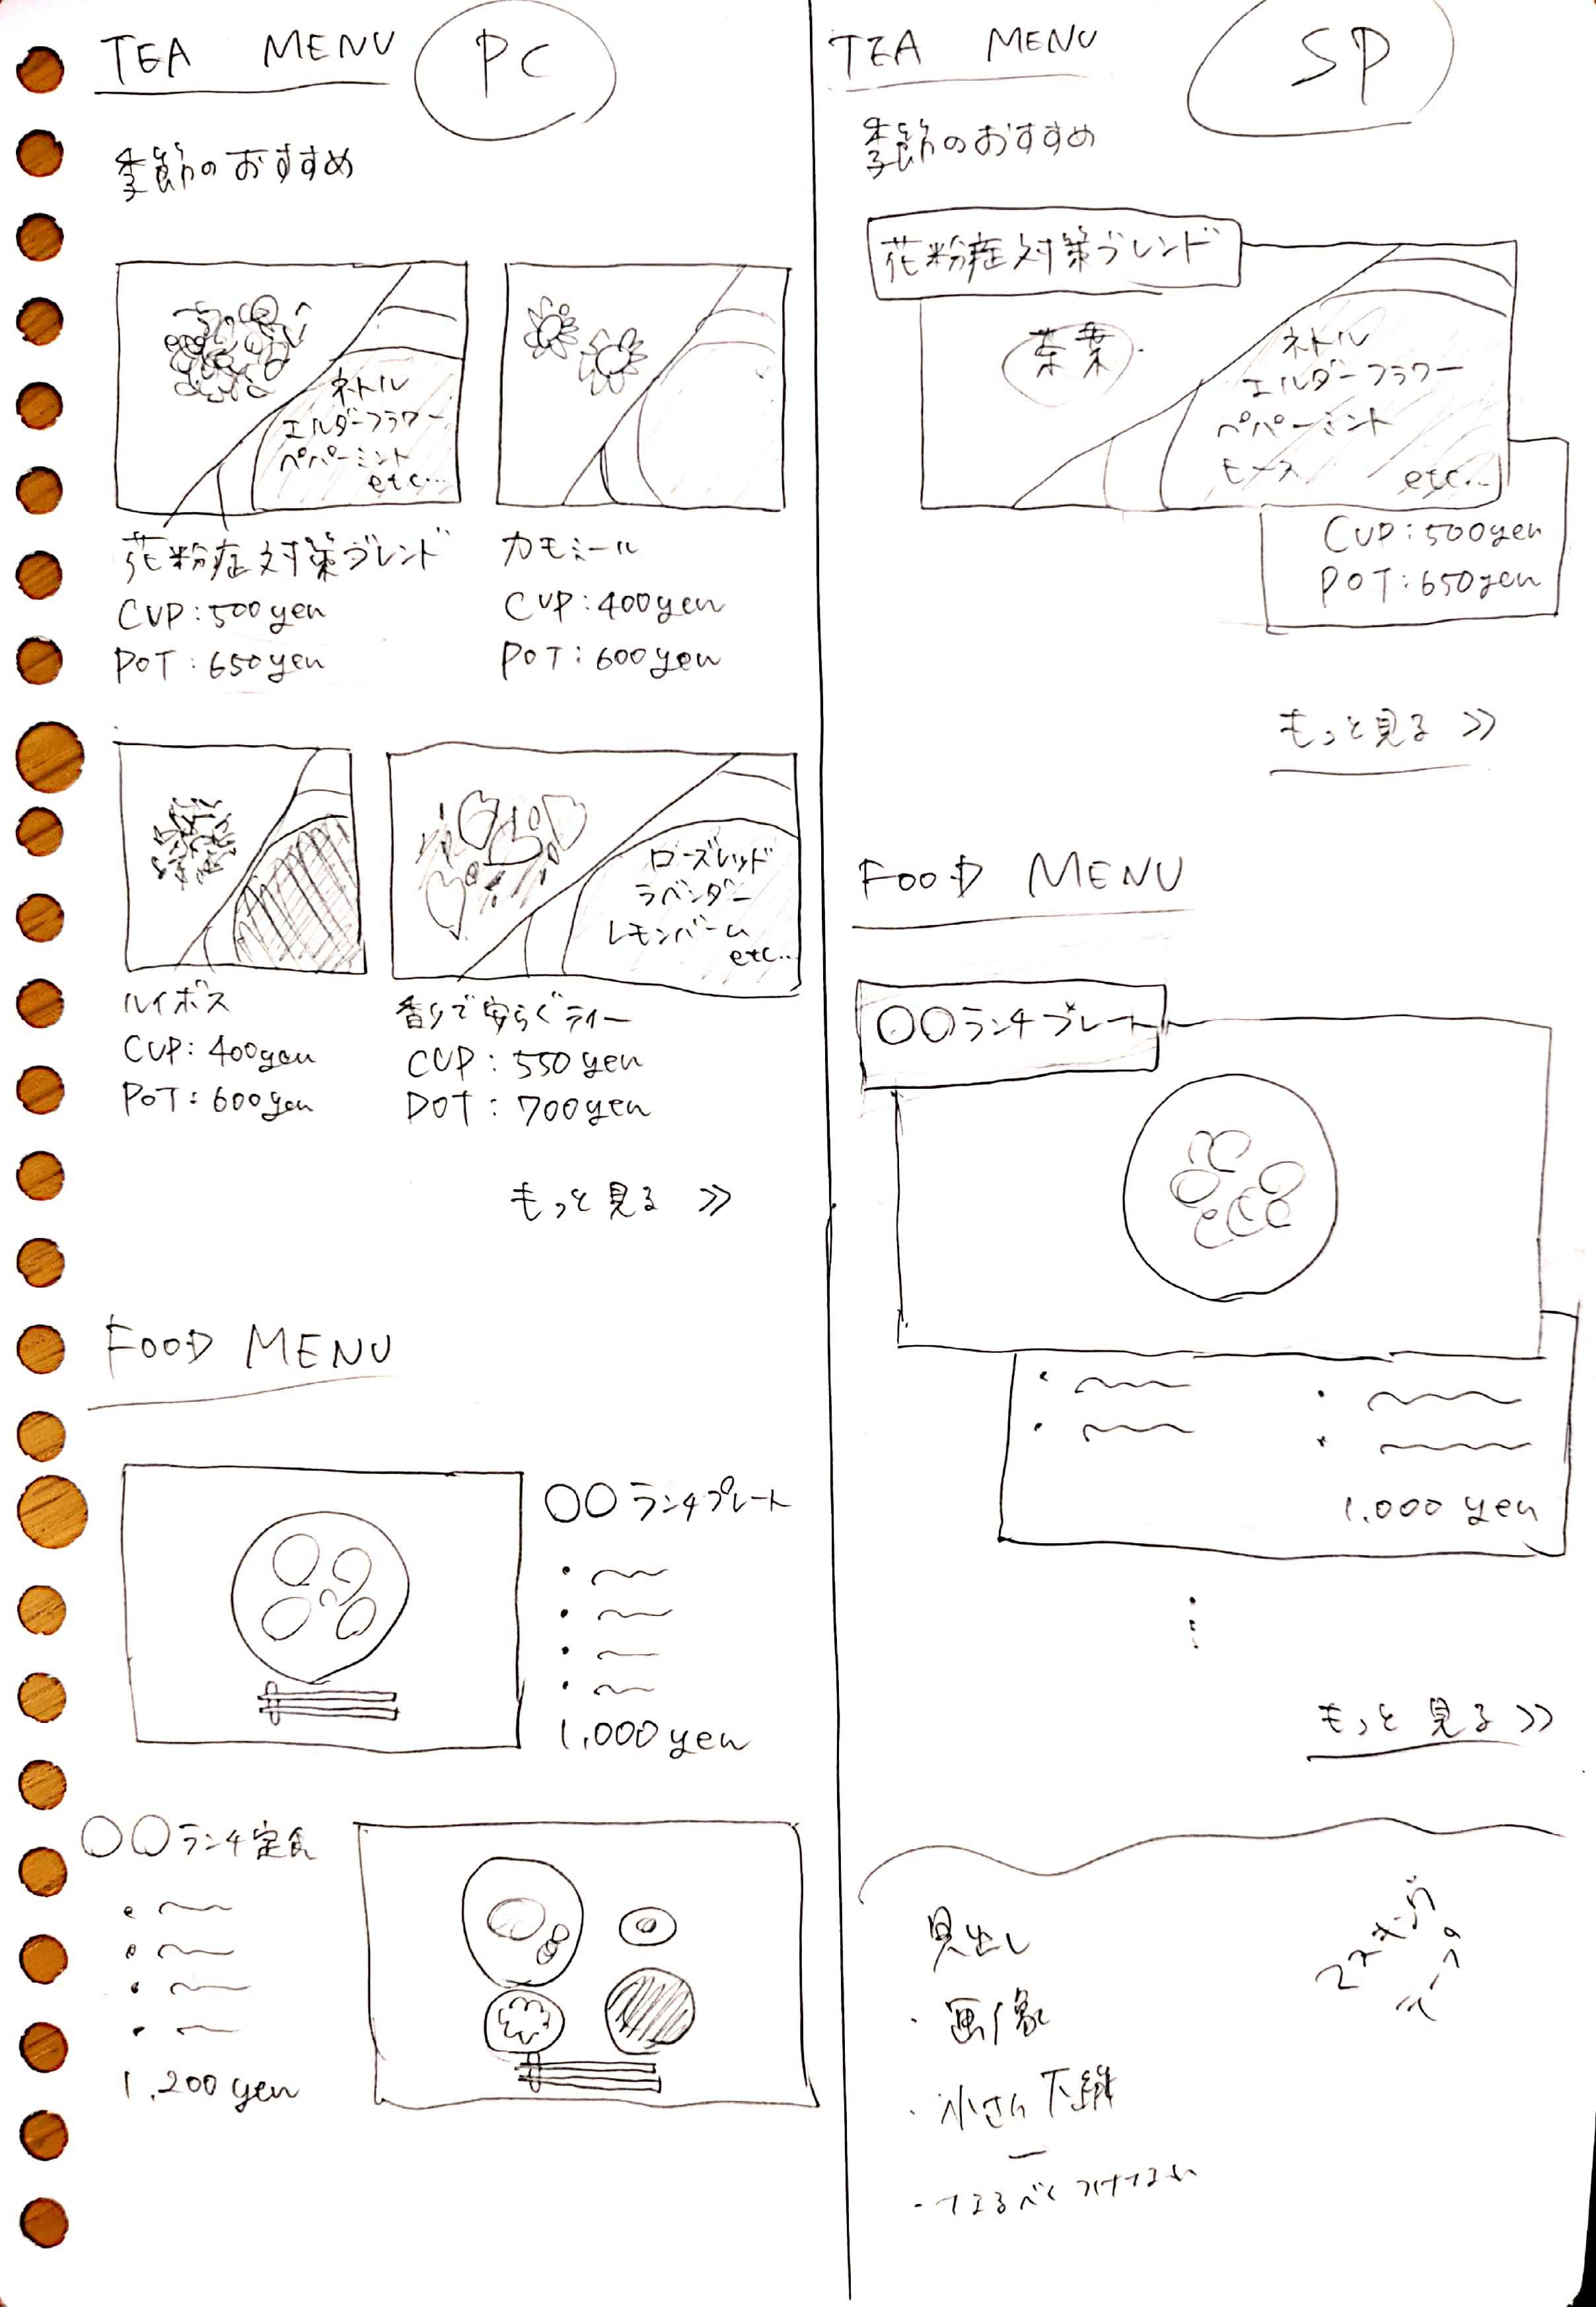 TEA MENU
PC
季節のおすすめ
ネトル
エルダーフラワー
ペパーミント
etc...
花粉症対策ブレンド
CUP:500yen
POT:650yen
カモミール
CUP:400yen
POT:600yen
ルイボス
CUP:400yen
POT:600yen
ローズレッド
ラベンダー
レモンバーム
etc...
香りで安らぐティー
CUP:550yen
POT:700yen
もっと見る >>
FOOD MENU
〇〇ランチプレート
1,000yen
〇〇ランチ定食
1,200yen
TEA MENU
SP
季節のおすすめ
花粉症対策ブレンド
茶葉
ネトル
エルダーフラワー
ペパーミント
ヒース
etc...
CUP:500yen
POT:650yen
もっと見る >>
FOOD MENU
〇〇ランチプレート
1,000 yen
もっと見る >>
見出し
・画像
・小さい下線
・なるべくつけない